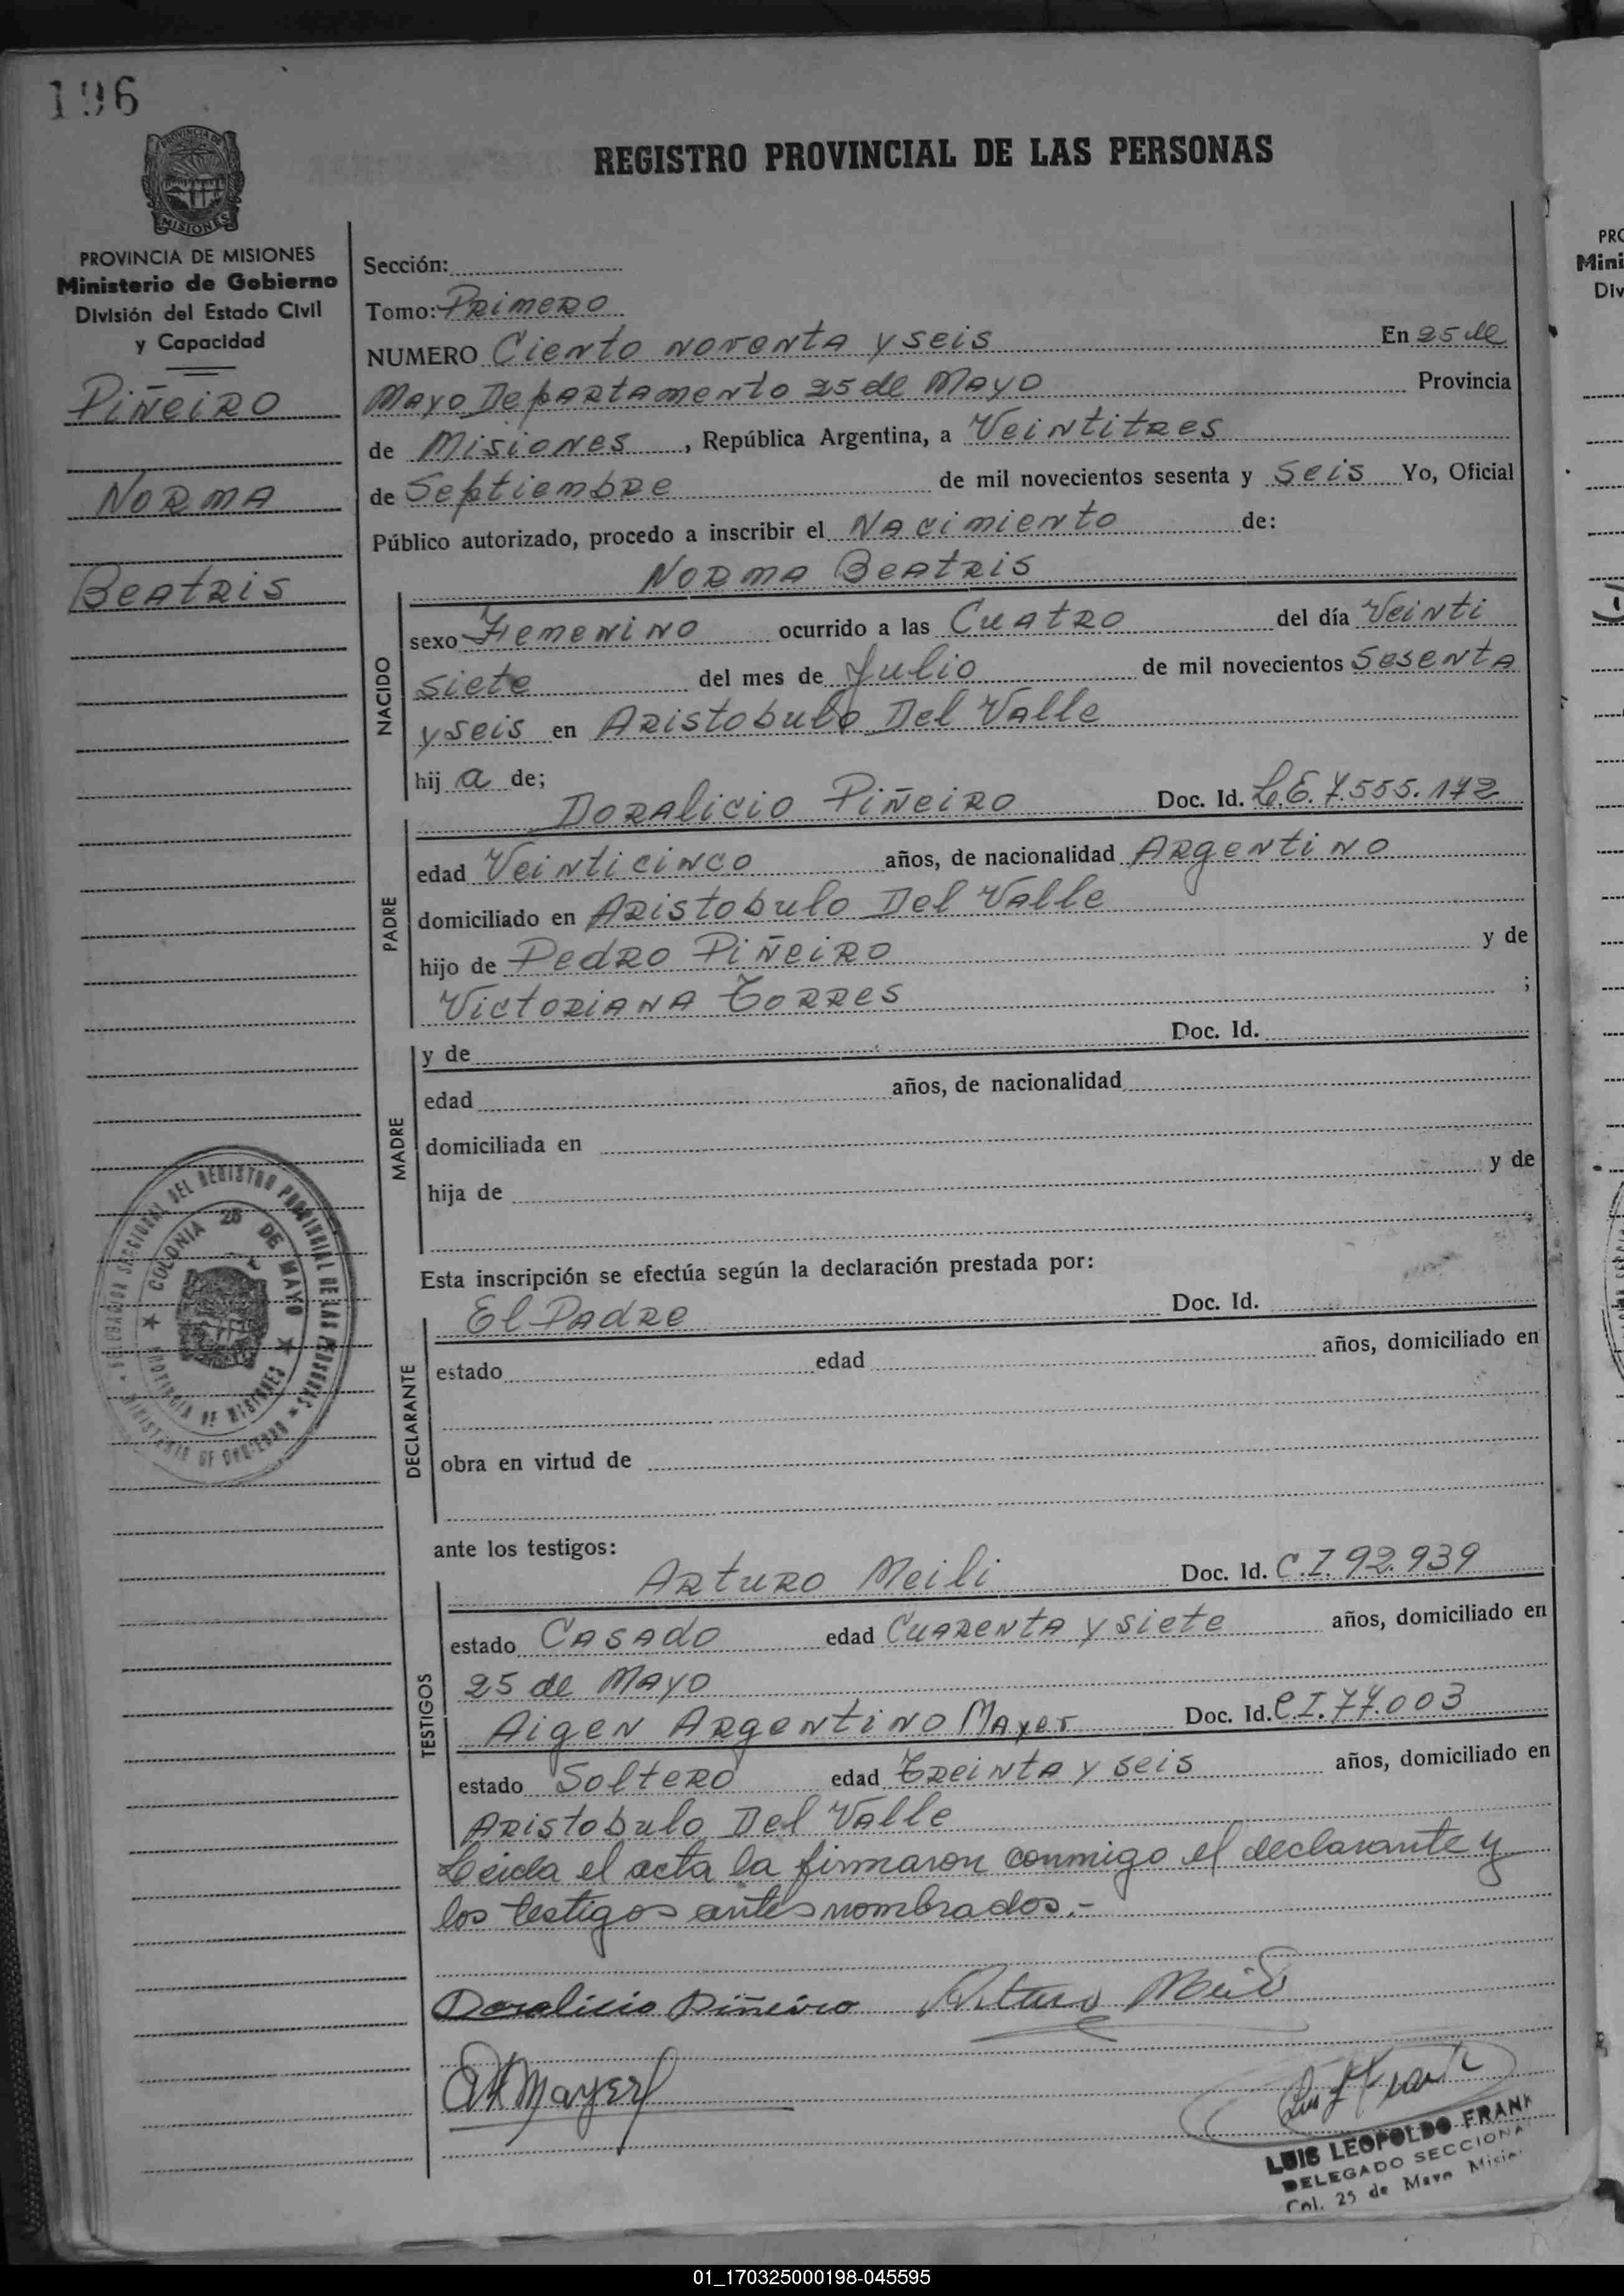 196
PROVINCIA DE
MISIONES
REGISTRO PROVINCIAL DE LAS PERSONAS
PROVINCIA DE MISIONES
Ministerio de Gobierno
División del Estado Civil
y Capacidad
PIÑEIRO
NORMA
BEATRIS
Sección:
Tomo: PRIMERO
NUMERO Ciento noventa y seis En 25 de
Mayo Departamento 25 de Mayo Provincia
de Misiones, República Argentina, a Veintitres
de Septiembre de mil novecientos sesenta y seis Yo, Oficial
Público autorizado, procedo a inscribir el Nacimiento de:
NORMA BEATRIS
NACIDO
sexo Femenino ocurrido a las Cuatro del día Veinti
siete del mes de Julio de mil novecientos sesenta
y seis en Aristobulo Del Valle
hij a de;
PADRE
Doralicio Piñeiro Doc. Id. L.E. 7.555.172
edad Veinticinco años, de nacionalidad Argentino
domiciliado en Aristobulo Del Valle
hijo de Pedro Piñeiro y de
Victoriana Torres ;
MADRE
y de Doc. Id.
edad años, de nacionalidad
domiciliada en
hija de y de
Esta inscripción se efectúa según la declaración prestada por:
DECLARANTE
El Padre Doc. Id.
estado edad años, domiciliado en
obra en virtud de
ante los testigos:
TESTIGOS
Arturo Meili Doc. Id. C.I. 92.939
estado Casado edad Cuarenta y siete años, domiciliado en
25 de Mayo
Aigen Argentino Mayer Doc. Id. C.I. 77.003
estado Soltero edad Treinta y seis años, domiciliado en
Aristobulo Del Valle
Leida el acta la firmaron conmigo el declarante y
los testigos antes nombrados.-
Doralicio Piñeiro Arturo Meili
Mayer
LUIS LEOPOLDO FRANK
DELEGADO SECCIONA
Col. 25 de Mayo Misio
DEL REGISTRO PROVINCIAL DE LAS PERSONAS
COLONIA 25 DE MAYO
PROVINCIA DE MISIONES
MINISTERIO DE GOBIERNO
PRO
Mini
Div
01_170325000198-045595